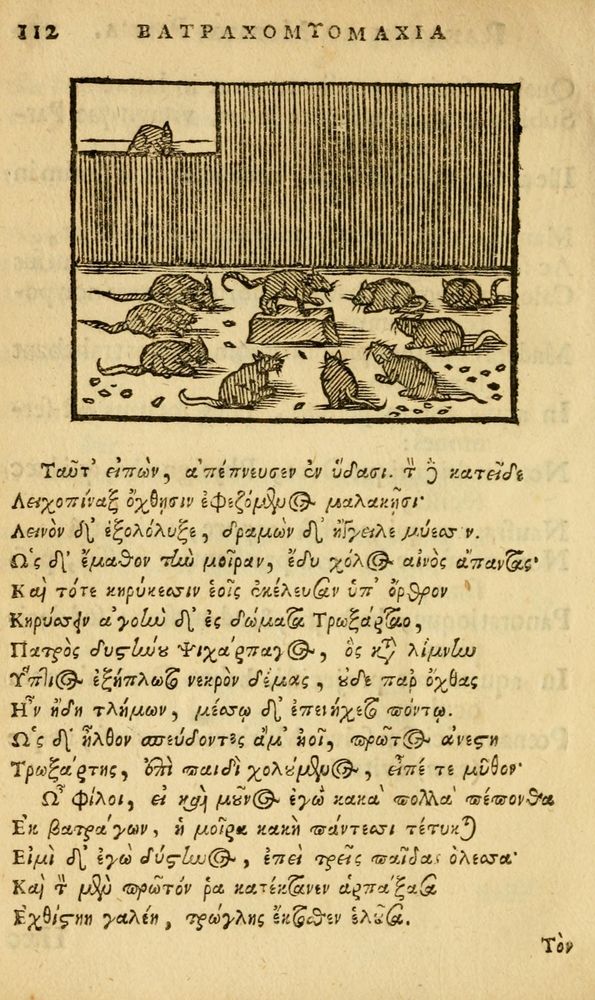 112 ΒΑΤΡΑΧΟΜΥΟΜΑΧΙΑ
Ταῦτ' εἰπὼν, ἀπέπνευσεν ἐν ὕδασι. τὸν δὲ κατεῖδε
Λειχοπίναξ ὄχθησιν ἐφεζόμενος μαλακῇσι·
Δεινὸν δ' ἐξολόλυξε, δραμὼν δ' ἤγγειλε μύεσσιν.
Ὡς δ' ἔμαθον τὴν μοῖραν, ἔδυ χόλος αἰνὸς ἅπαντας·
Καὶ τότε κηρύκεσσιν ἑοῖς ἐκέλευσαν ὑπ' ὄρθρον
Κηρύσσειν ἀγορὴν δ' ἐς δώματα Τρωξάρταο,
Πατρὸς δυστήνου Ψιχάρπαγος, ὃς κατὰ λίμνην
Ὕπτιος ἐξήπλωτο νεκρὸν δέμας, οὐδὲ παρ' ὄχθας
Ἦν ἤδη τλήμων, μέσσῳ δ' ἐπενήχετο πόντῳ.
Ὡς δ' ἦλθον σπεύδοντες ἅμ' ἠοῖ, πρῶτος ἀνέστη
Τρωξάρτης, ἐπὶ παιδὶ χολούμενος, εἶπέ τε μῦθον·
Ὦ φίλοι, εἰ καὶ μοῦνος ἐγὼ κακὰ πολλὰ πέπονθα
Ἐκ βατράχων, ἡ μοῖρα κακὴ πάντεσσι τέτυκται
Εἰμὶ δ' ἐγὼ δύστηνος, ἐπεὶ τρεῖς παῖδας ὄλεσσα·
Καὶ τὸν μὲν πρῶτόν ῥα κατέκτανεν ἁρπάξασα
Ἐχθίστη γαλέη, τρώγλης ἔκτοθεν ἑλοῦσα.
Τὸν